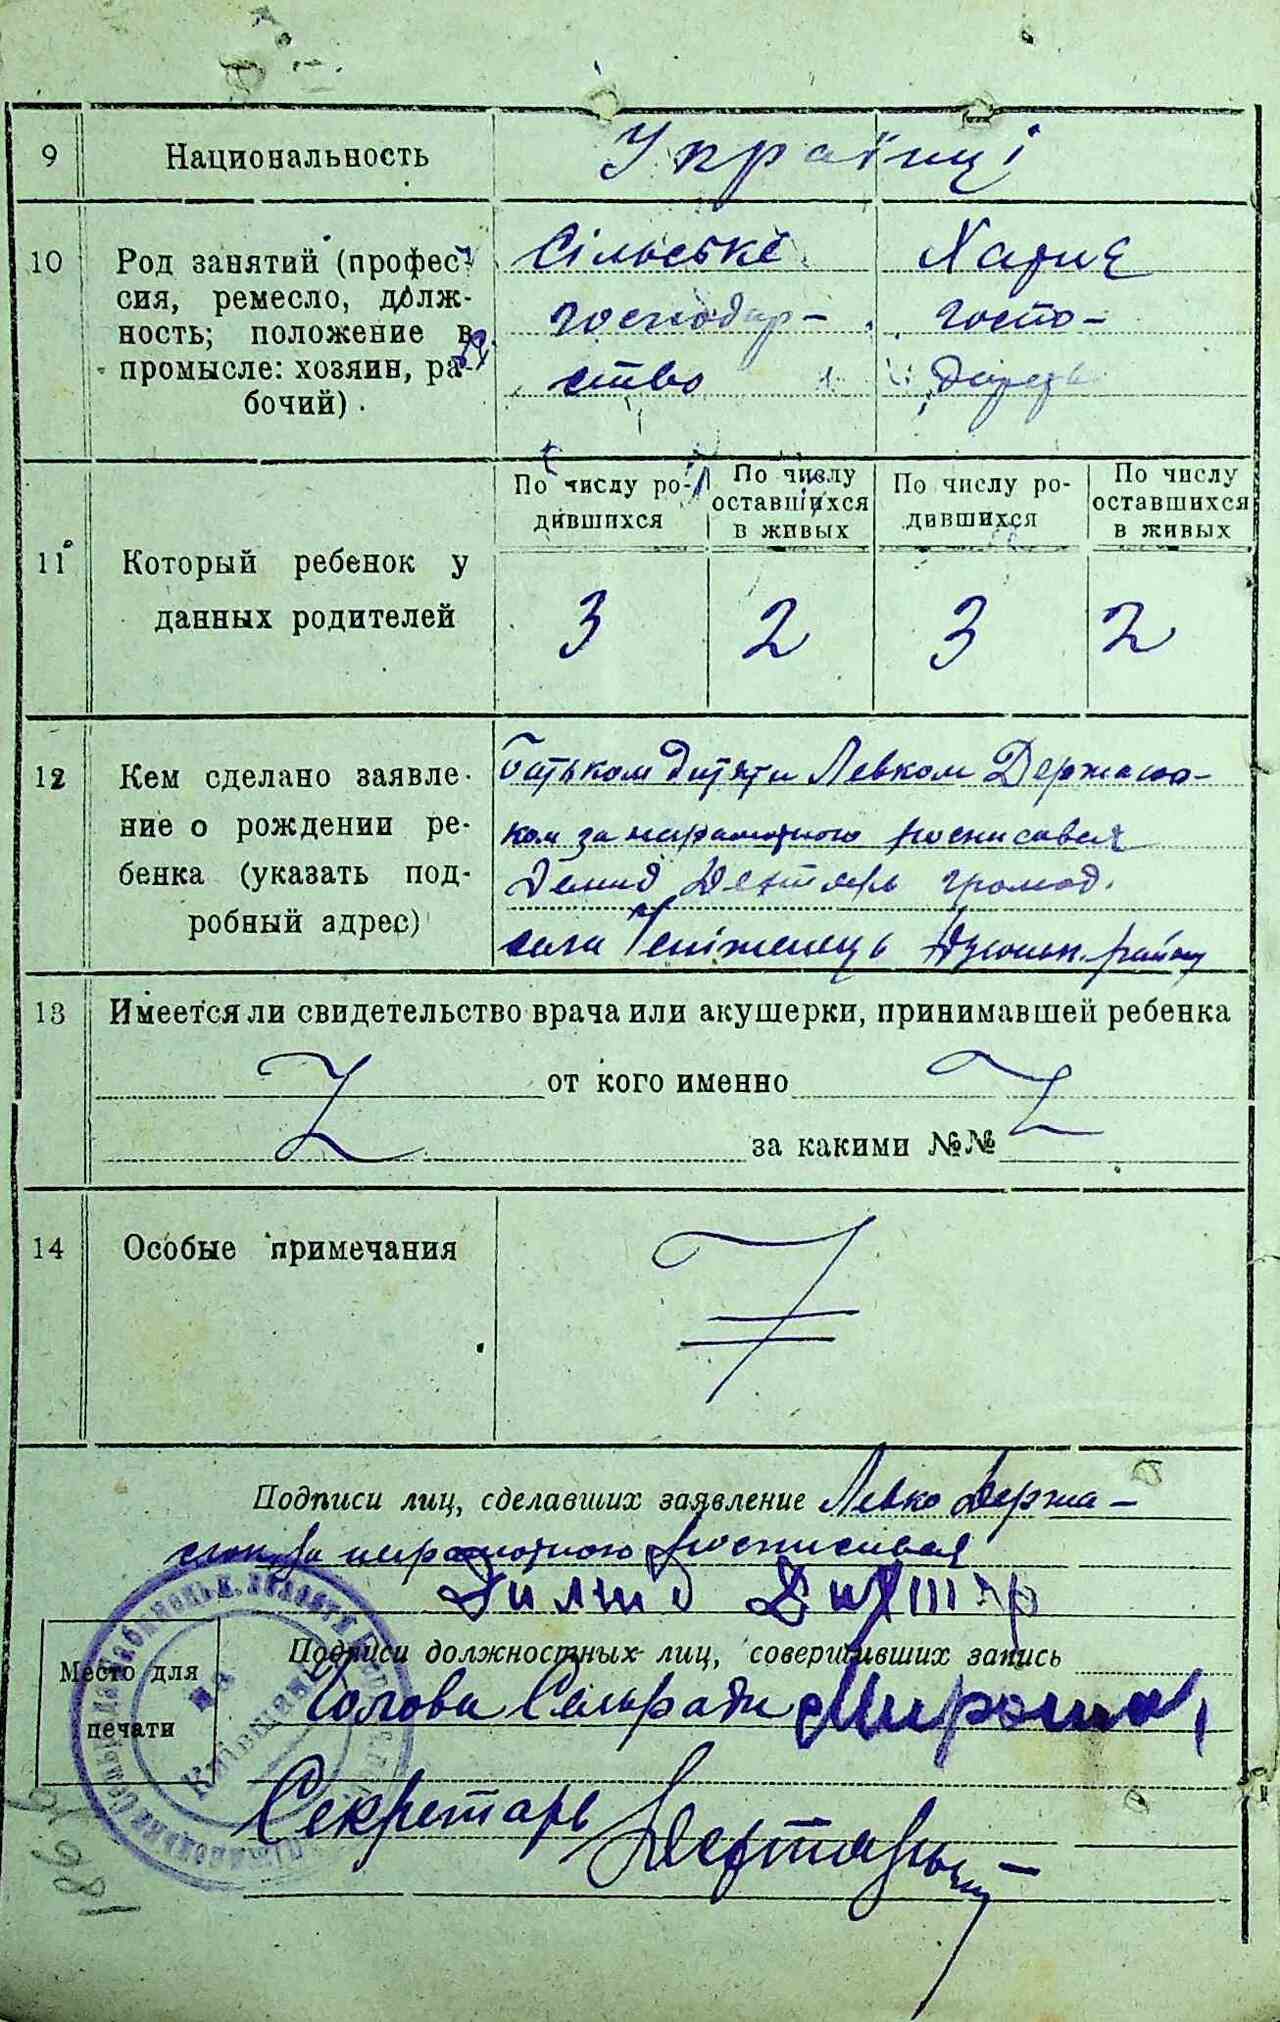 9 Национальность Українці
10 Род занятий (профес-
сия, ремесло, долж-
ность; положение в
промысле: хозяин, ра-
бочий)
Сільське
господар-
ство
Хатнє
госпо-
дарство
11 Который ребенок у
данных родителей
По числу ро-
дившихся
По числу
оставшихся
в живых
По числу ро-
дившихся
По числу
оставшихся
в живых
3 2 3 2
12 Кем сделано заявле-
ние о рождении ре-
бенка (указать под-
робный адрес)
Батьком дитяти Левком Держа
ком за неграмотного росписався
Демид Дехтярь громад.
села району
13 Имеется ли свидетельство врача или акушерки, принимавшей ребенка
Z от кого именно Z
за какими №№
14 Особые примечания
Подписи лиц, сделавших заявление Левко Держа-
за неграмотного росписався
Димид Дихтяр
Подписи должностных лиц, совершивших запись
Место для
печати
Голова Сельради
Секретарь
на
Київщині
1867